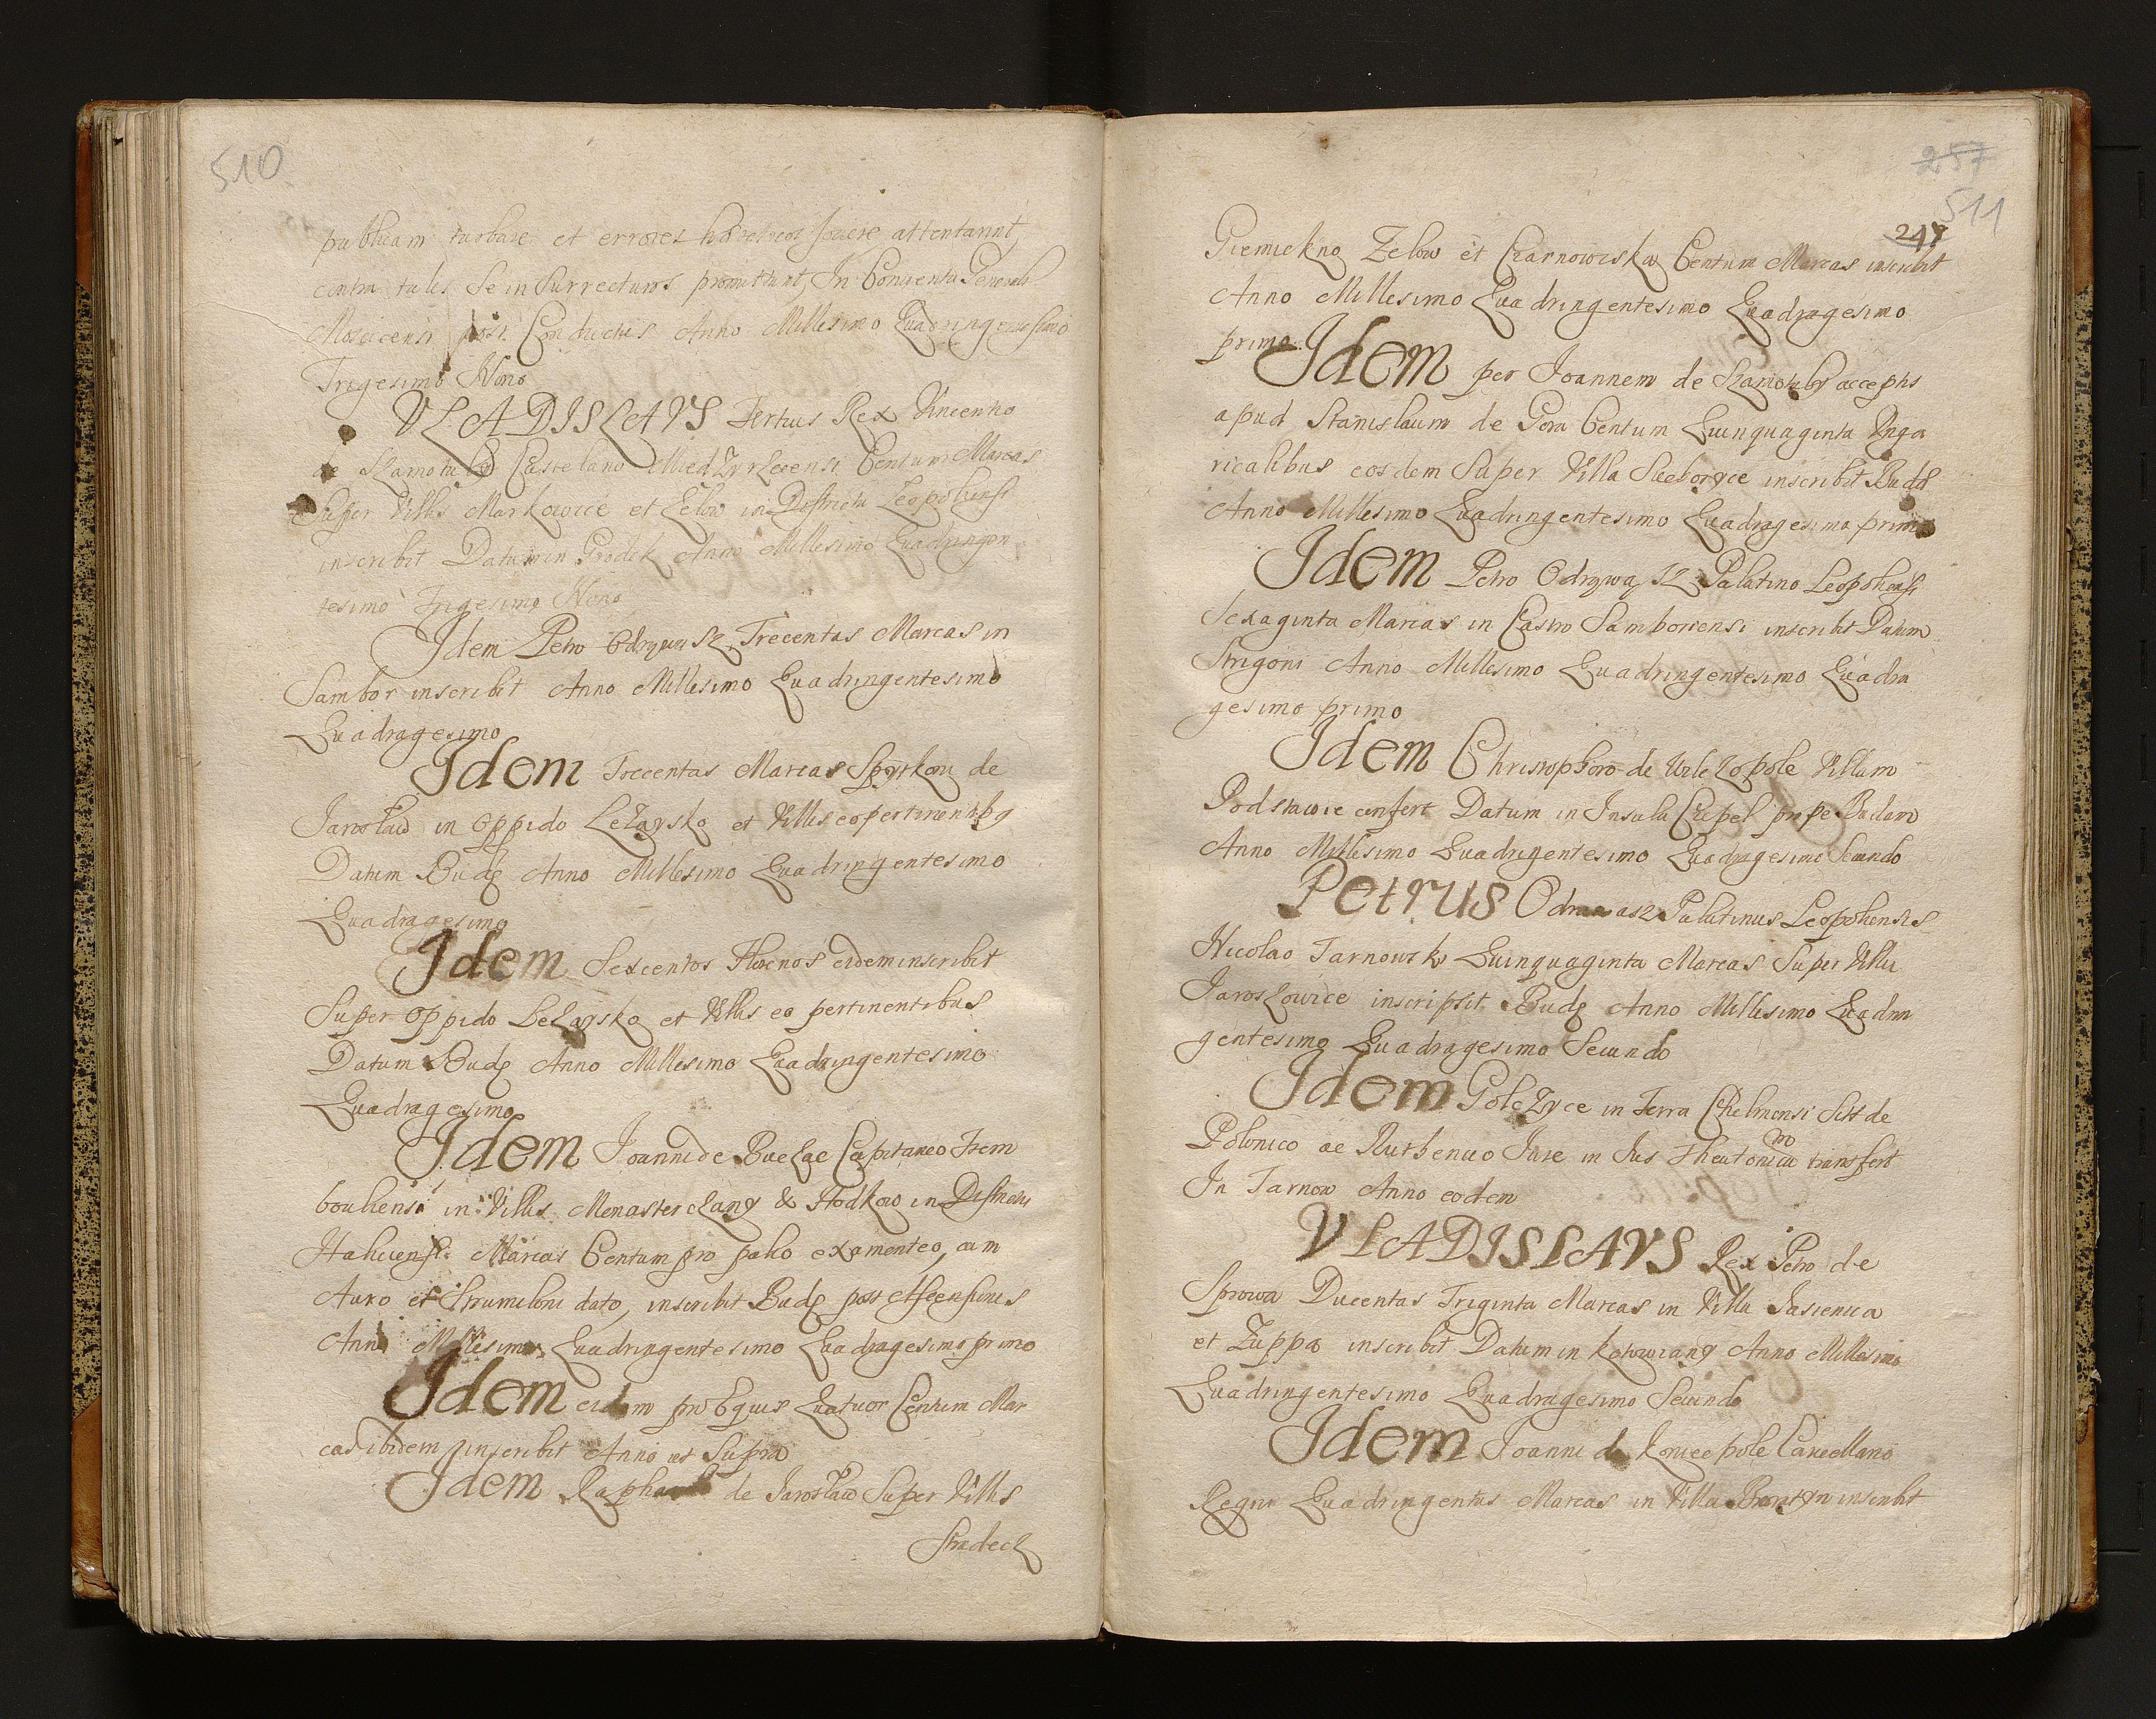 510
publicam turbare et errores hæreticos fovere attentarint,
contra tales Se insurrecturos promittunt, In Conventu Generali
Mosticensi post Conductus Anno Millesimo Quadringentesimo
Trigesimo Nono
VLADISLAVS Tertius Rex Vincentio
de Szamotuly Castelano Miedzyrzecensi Centum Marcas
Super Villis Markowice et Zelow in Districtu Leopoliensi
inscribit Datum in Grodek Anno Millesimo Quadringen
tesimo Trigesimo Nono
Idem Petro Odrowasz, Trecentas Marcas in
Sambor inscribit Anno Millesimo Quadringentesimo
Quadragesimo
Idem Trecentas Marcas Spytkoni de
Jarosław in Oppido Lezaysko et Villis eo pertinentibg
Datum Budę Anno Millesimo Quadringentesimo
Quadragesimo
Idem Sexcentos Florenos eidem inscribit
Super Oppido Lezaysko et Villis eo pertinentibus
Datum Budę Anno Millesimo Quadringentesimo
Quadragesimo
Idem Joanni de Buczacz Capitaneo Trem
bouliensi in Villis Monasterczany & Hodkow in Districtu
Haliciensi Marcas Centum pro palio examenteo, cum
Auro et Strumiloni dato, inscribit Budę post Ascensionis
Anno Millesimo Quadringentesimo Quadragesimo primo
Idem eidem pro Equis Quatuor Centum Mar
cas ibidem inscribit Anno ut Supra
Idem Raphaeli de Jarosław Super Villis
Stradecz
257
511
247
Piemiekno Zelow et Czarnowisko Centum Marcas inscribit
Anno Millesimo Quadringentesimo Quadragesimo
primo
Idem per Joannem de Szamotuly acceptis
apud Stanislaum de Gora Centum Quinquaginta Unga
ricalibus eosdem Super Villa Siceborzyce inscribit Budę
Anno Millesimo Quadringentesimo Quadragesimo primo
Idem Petro Odrowąsz Palatino Leopoliensi
Sexaginta Marcas in Castro Samboriensi inscribit Datum
Strigoni Anno Millesimo Quadringentesimo Quadra
gesimo primo
Idem Christophoro de Wielezopole Villam
Podstawie confert Datum in Insula Czepel prope Budam
Anno Millesimo Quadringentesimo Quadragesimo Secundo
Petrus Odrowasz Palatinus Leopoliensis
Nicolao Tarnowsky Quinquaginta Marcas Super Villa
Jaroszowice inscripsit Budę Anno Millesimo Quadrin
gentesimo Quadragesimo Secundo
Idem Golezyce in Terra Chelmensi Sist de
Polonico ac Ruthenico Jure in Jus Theutonicum transfert
In Tarnow Anno eodem
VLADISLAVS Rex Petro de
Sprowa Ducentas Triginta Marcas in Villa Jasienica
et Zuppa inscribit Datum in Anno Millesimo
Quadringentesimo Quadragesimo Secundo
Idem Joanni de Koniecpole Cancellario
Regni Quadringentas Marcas in Villa inscribit